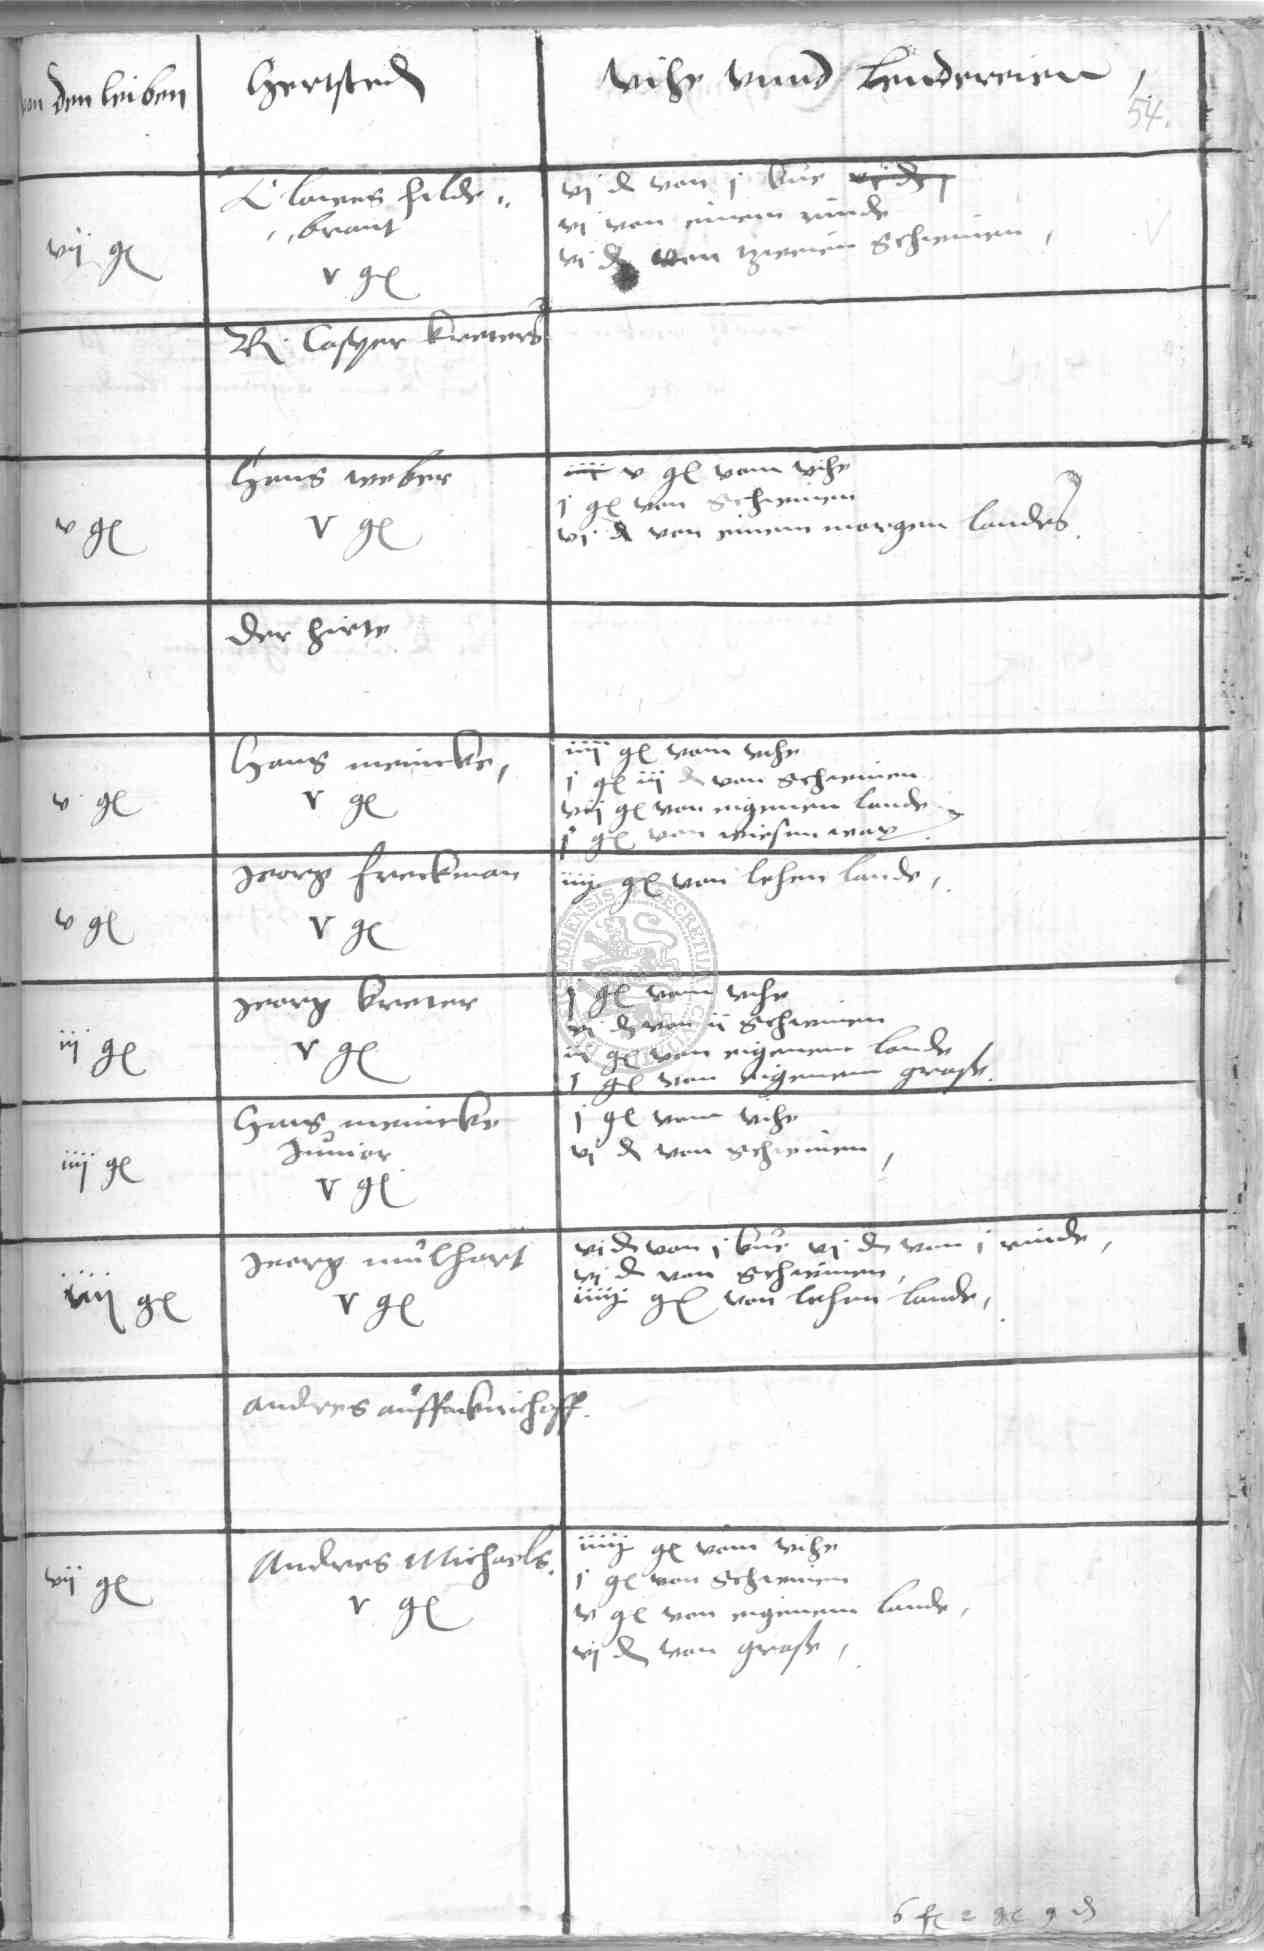 von den leiben
Hertsted
Vihe vnnd Lendereien,
54.
vij gl
Clawes Hilde„
„brant
v gl
vj d von j kue vj d j
vj von einem rinde
vi d von tzweien Schweinen,
Casper kreters
v gl
Hans weber
V gl
iiij v gl vom vihe
j gl von Schweinen
vj d von einem morgen landes.
der hirte
v gl
Hans meincke,
v gl
iiij gl vom vihe
j gl iij d von Schweinen
vij gl von eigenem lande
j gl von wiesenwax
v gl
Jeorg freckman
V gl
iiij gl von lehen lande,
iij gl
Jeorg kreter
v gl
j gl vom vihe
vj d von ij Schweinen
iij gl von eigenem lande
j gl von eigenem graße.
iiij gl
Hans meincke
Junior
v gl
j gl vom vihe
vj d von Schweinen,
iiij gl
Jeorg mulhart
v gl
vj d von j kue vj d von j rinde,
vj d von Schweinen,
iiij gl von lehen lande,
andres auffmkirchoff.
vij gl
Andres Michaels.
v gl
iiij gl vom vihe
j gl von Schweinen
v gl von eigenem lande,
vj d von graße,
6 fl 2 gl 9 d